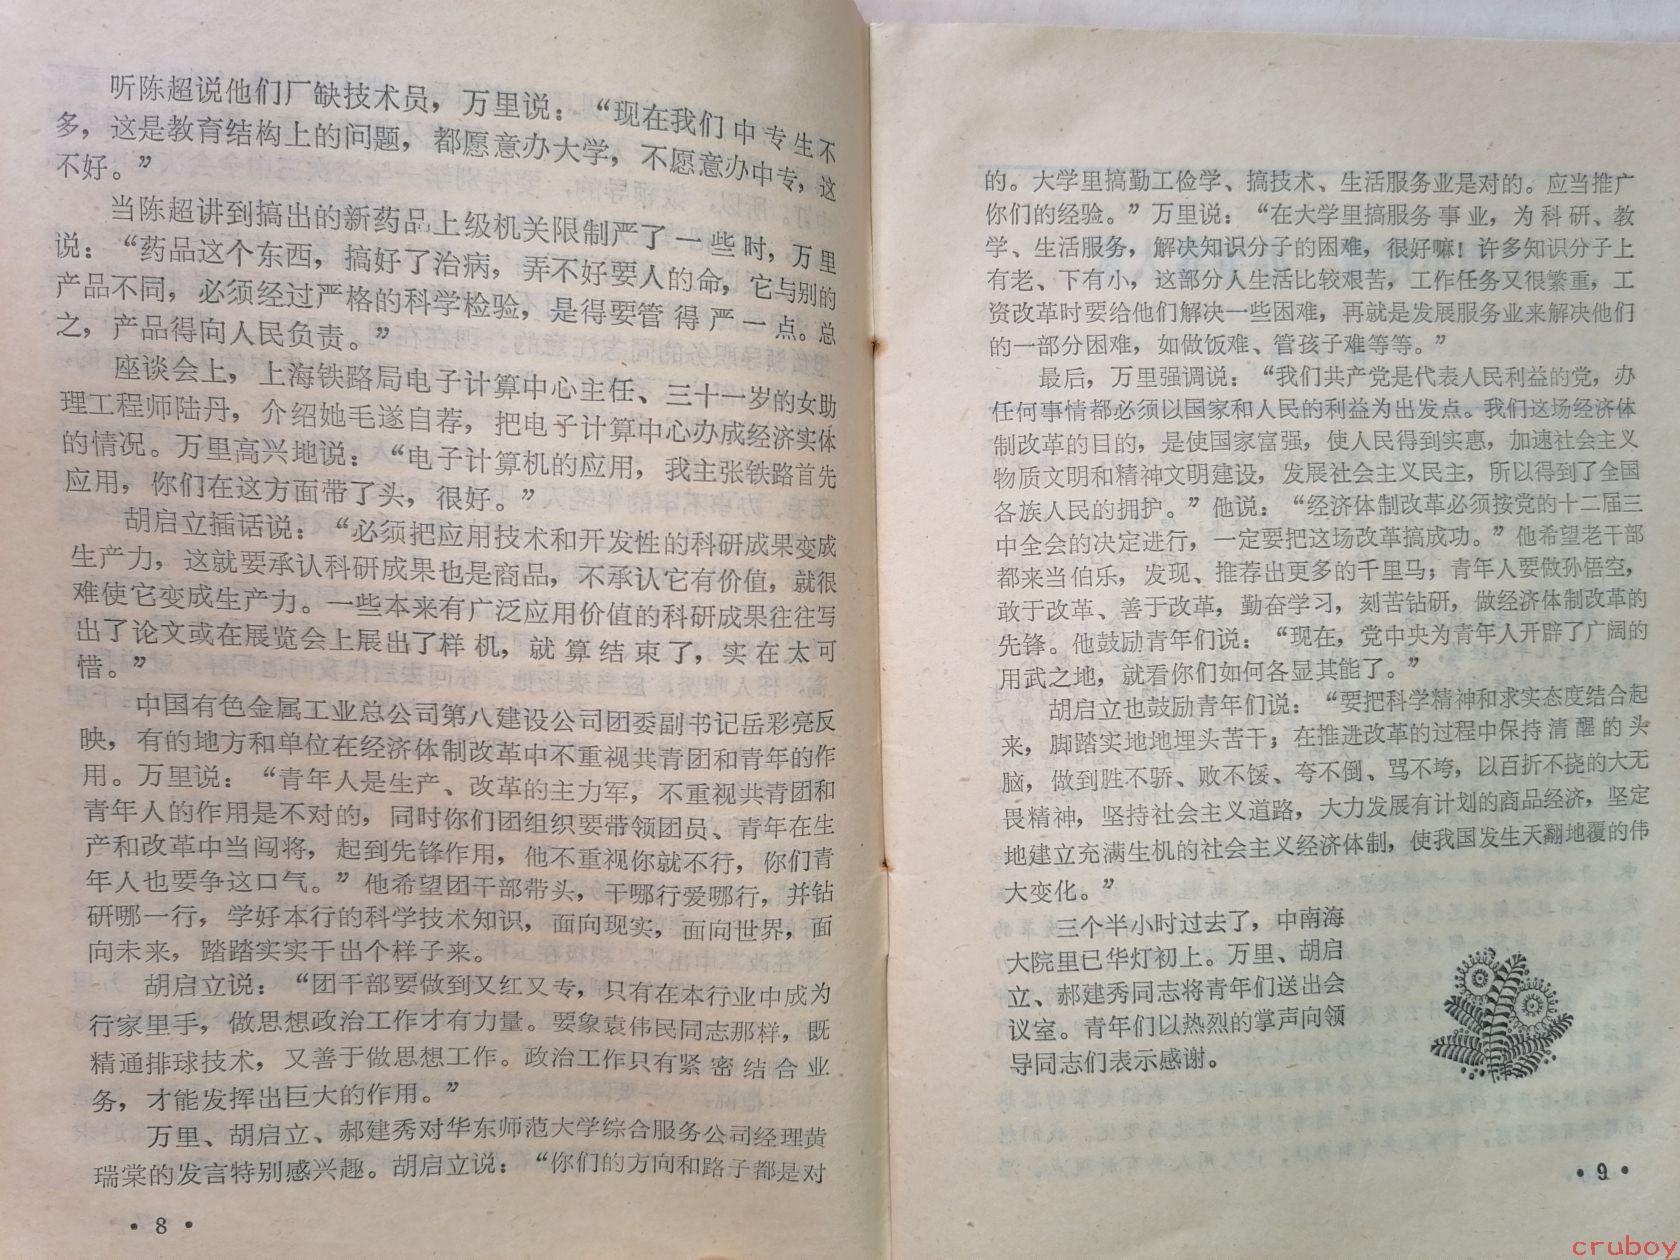 听陈超说他们厂缺技术员，万里说：“现在我们中专生不
多，这是教育结构上的问题，都愿意办大学，不愿意办中专，这
不好。”
当陈超讲到搞出的新药品上级机关限制严了一些时，万里
说：“药品这个东西，搞好了治病，弄不好要人的命，它与别的
产品不同，必须经过严格的科学检验，是得要管得严一点。总
之，产品得向人民负责。”
座谈会上，上海铁路局电子计算中心主任、三十一岁的女助
理工程师陆丹，介绍她毛遂自荐，把电子计算中心办成经济实体
的情况。万里高兴地说：“电子计算机的应用，我主张铁路首先
应用，你们在这方面带了头，很好。”
胡启立插话说：“必须把应用技术和开发性的科研成果变成
生产力，这就要承认科研成果也是商品，不承认它有价值，就很
难使它变成生产力。一些本来有广泛应用价值的科研成果往往写
出了论文或在展览会上展出了样机，就算结束了，实在太可
惜。”
中国有色金属工业总公司第八建设公司团委副书记岳彩亮反
映，有的地方和单位在经济体制改革中不重视共青团和青年的作
用。万里说：“青年人是生产、改革的主力军，不重视共青团和
青年人的作用是不对的，同时你们团组织要带领团员、青年在生
产和改革中当闯将，起到先锋作用，他不重视你就不行，你们青
年人也要争这口气。”他希望团干部带头，干哪行爱哪行，并钻
研哪一行，学好本行的科学技术知识，面向现实，面向世界，面
向未来，踏踏实实干出个样子来。
胡启立说：“团干部要做到又红又专，只有在本行业中成为
行家里手，做思想政治工作才有力量。要象袁伟民同志那样，既
精通排球技术，又善于做思想工作。政治工作只有紧密结合业
务，才能发挥出巨大的作用。”
万里、胡启立、郝建秀对华东师范大学综合服务公司经理黄
瑞棠的发言特别感兴趣。胡启立说：“你们的方向和路子都是对
• 8 •
的。大学里搞勤工俭学、搞技术、生活服务业是对的。应当推广
你们的经验。”万里说：“在大学里搞服务事业，为科研、教
学、生活服务，解决知识分子的困难，很好嘛！许多知识分子上
有老、下有小，这部分人生活比较艰苦，工作任务又很繁重，工
资改革时要给他们解决一些困难，再就是发展服务业来解决他们
的一部分困难，如做饭难、管孩子难等等。”
最后，万里强调说：“我们共产党是代表人民利益的党，办
任何事情都必须以国家和人民的利益为出发点。我们这场经济体
制改革的目的，是使国家富强，使人民得到实惠，加速社会主义
物质文明和精神文明建设，发展社会主义民主，所以得到了全国
各族人民的拥护。”他说：“经济体制改革必须按党的十二届三
中全会的决定进行，一定要把这场改革搞成功。”他希望老干部
都来当伯乐，发现、推荐出更多的千里马；青年人要做孙悟空，
敢于改革、善于改革，勤奋学习，刻苦钻研，做经济体制改革的
先锋。他鼓励青年们说：“现在，党中央为青年人开辟了广阔的
用武之地，就看你们如何各显其能了。”
胡启立也鼓励青年们说：“要把科学精神和求实态度结合起
来，脚踏实地地埋头苦干；在推进改革的过程中保持清醒的头
脑，做到胜不骄、败不馁、夸不倒、骂不垮，以百折不挠的大无
畏精神，坚持社会主义道路，大力发展有计划的商品经济，坚定
地建立充满生机的社会主义经济体制，使我国发生天翻地覆的伟
大变化。”
三个半小时过去了，中南海
大院里已华灯初上。万里、胡启
立、郝建秀同志将青年们送出会
议室。青年们以热烈的掌声向领
导同志们表示感谢。
• 9 •
cruboy